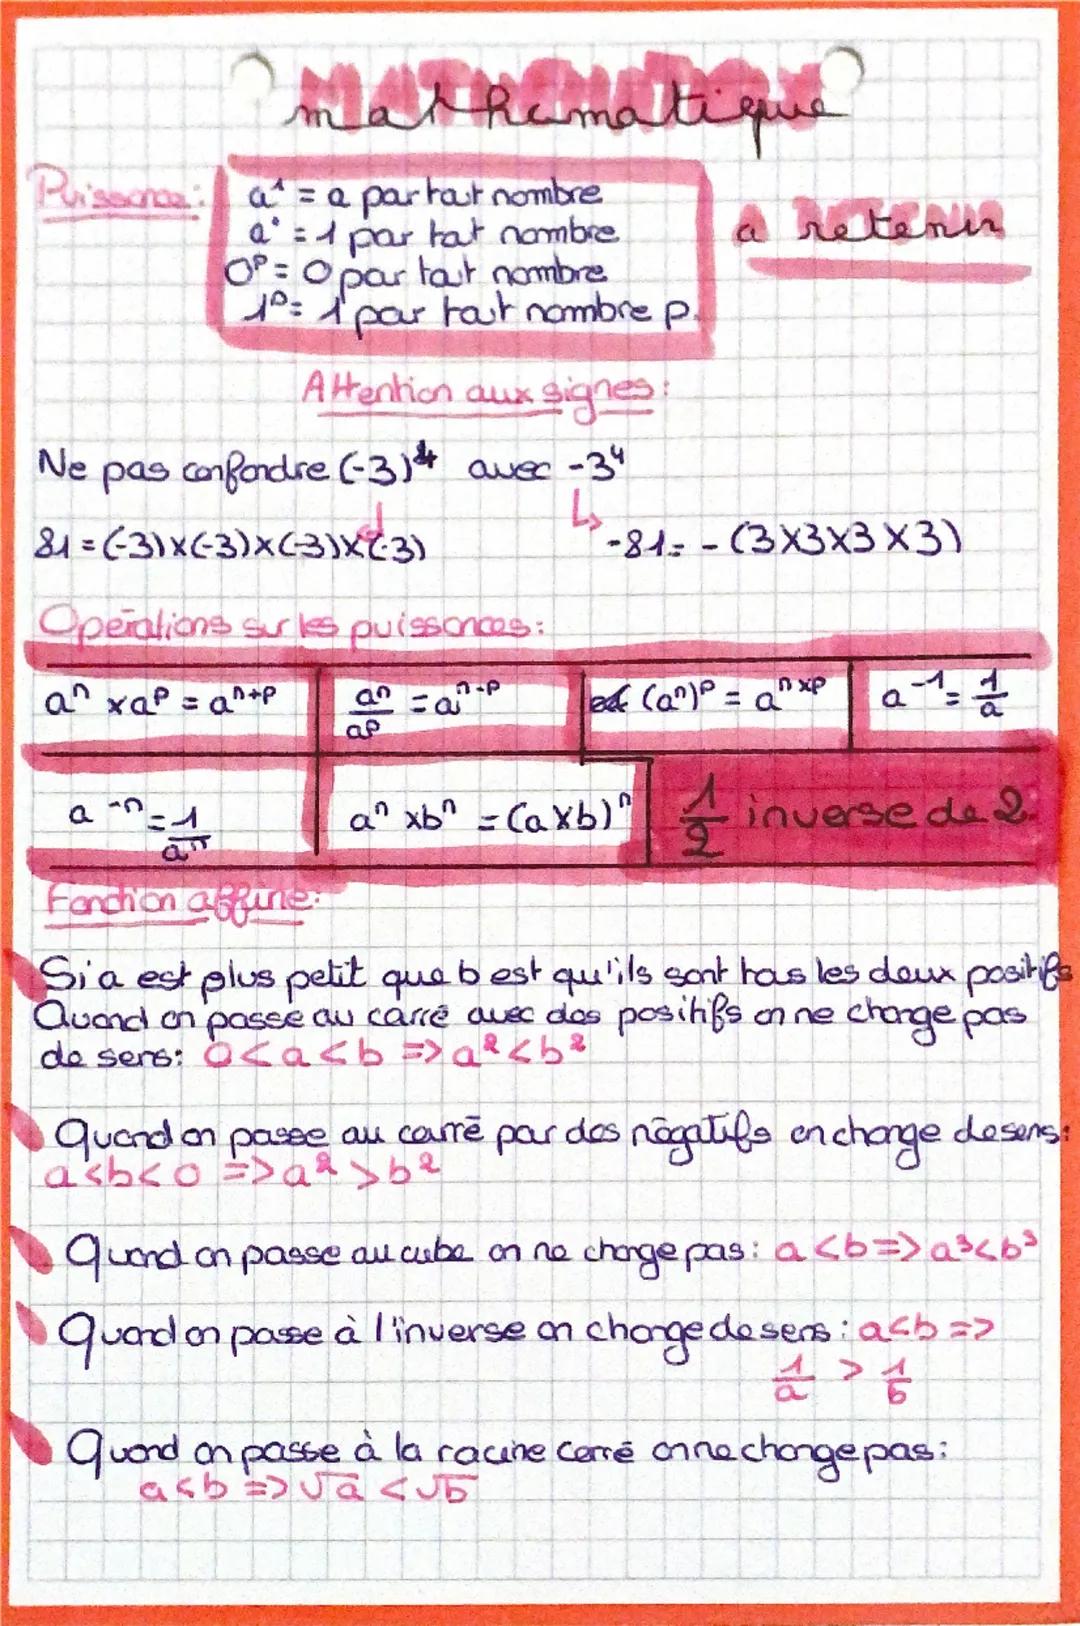 mathematique
Puissance:
a¹ = a par tout nombre
a° = 1 par tout nombre
0ᵖ = 0 par tout nombre
1ᵖ = 1 par tout nombre p.
a retenir
Attention aux signes:
Ne pas confondre (-3)⁴ avec -3⁴
81 = (-3)x(-3)x(-3)x(-3)
-81 = - (3x3x3x3)
Opérations sur les puissances:
aⁿ x aᵖ = aⁿ⁺ᵖ
aⁿ/aᵖ = aⁿ⁻ᵖ
(aⁿ)ᵖ = aⁿˣᵖ
a⁻¹ = 1/a
a⁻ⁿ = 1/aⁿ
aⁿ xbⁿ = (axb)ⁿ
1/2 inverse de 2
Fonction affine:
Si a est plus petit que b est qu'ils sont tous les deux positifs
Quand on passe au carré avec des positifs on ne change pas
de sens: 0<a<b => a²<b²
Quand on passe au carré par des négatifs on change de sens:
a<b<0 => a²>b²
Quand on passe au cube on ne change pas: a<b => a³<b³
Quand on passe à l'inverse on change de sens: a<b =>
1/a > 1/b
Quand on passe à la racine carré on ne change pas:
a<b => √a < √b